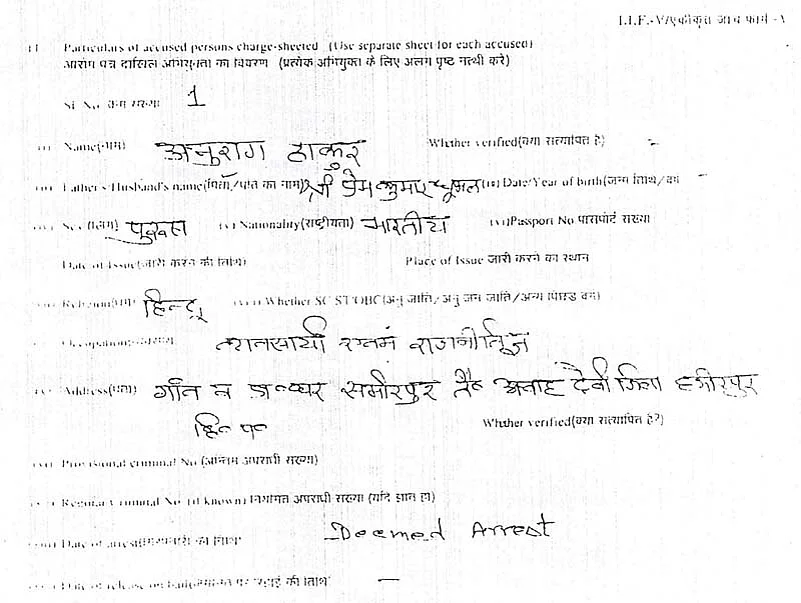 I.I.F.-V/एकीकृत जांच फार्म -V
11 Particulars of accused persons charge-sheeted (Use separate sheet for each accused)
आरोप पत्र दाखिल अभियुक्तों का विवरण (प्रत्येक अभियुक्त के लिए अलग पृष्ठ नत्थी करें)
Sl. No. क्रम संख्या 1
(i) Name(नाम) अनुराग ठाकुर Whether verified(क्या सत्यापित है) -
(ii) Father's/Husband's name(पिता/पति का नाम) श्री प्रेम कुमार धूमल (iii) Date/Year of birth(जन्म तिथि/वर्ष -
(iv) Sex(लिंग) पुरुष (v) Nationality(राष्ट्रीयता) भारतीय (vi)Passport No पासपोर्ट संख्या
Date of Issue(जारी करने की तिथि) Place of Issue जारी करने का स्थान
Religion(धर्म) हिन्दू Whether SC/ST/OBC(अनु जाति/अनु जन जाति/अन्य पिछड़ा वर्ग)
Occupation व्यवसायी एवम राजनीतिज्ञ
Address(पता) गाँव व समीरपुर तै० देवी जिला हमीरपुर
हि० प्र० Whether verified(क्या सत्यापित है?)
Provisional criminal No (अन्तिम अपराधी संख्या)
Regular criminal No. (if known) नियमित अपराधी संख्या (यदि ज्ञात हो)
Date of arrest गिरफ्तारी की तिथि Deemed Arrest
Date of release on bail जमानत पर रिहाई की तिथि —